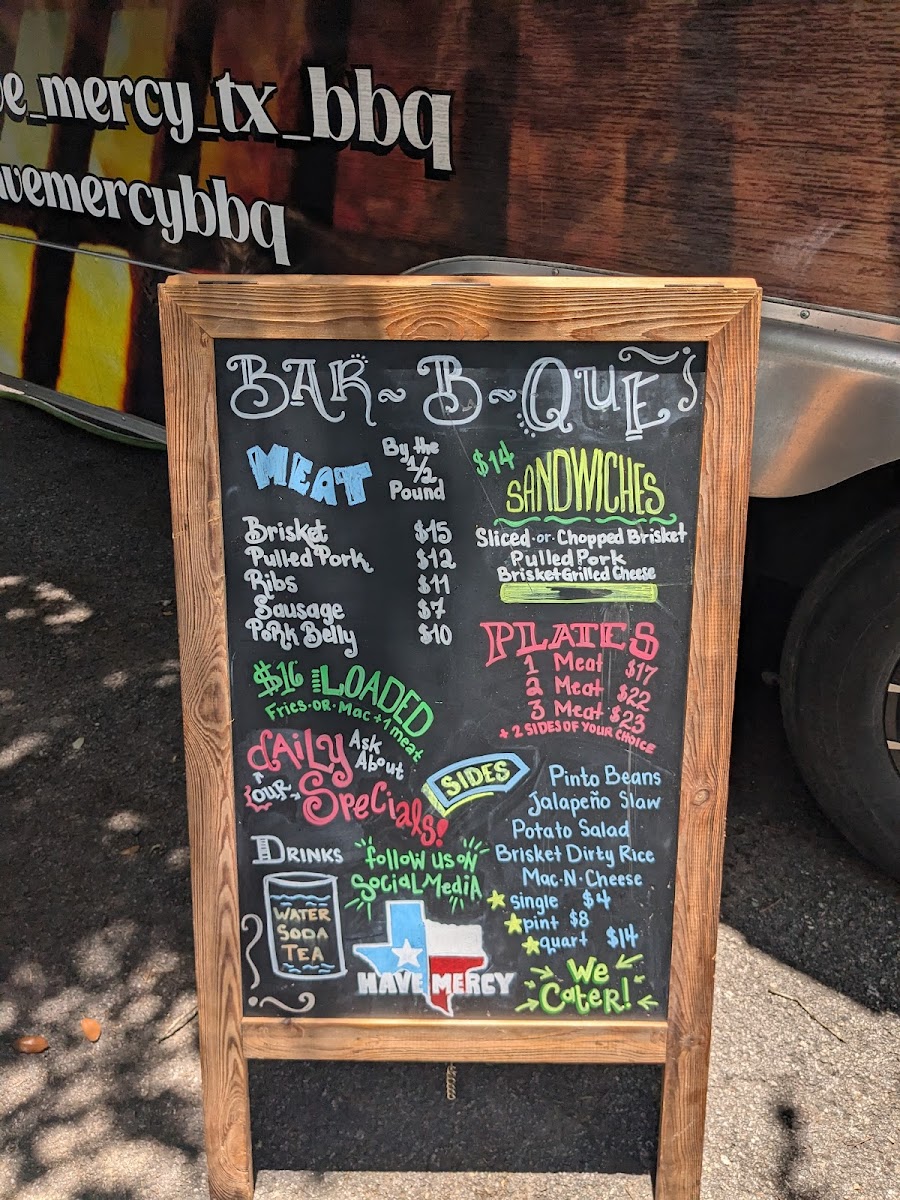 e_mercy_tx_bbq
vemercybbq
BAR~B~QUE
MEAT
By the
1/2
Pound
Brisket $15
Pulled Pork $12
Ribs $11
Sausage $7
Pork Belly $10
$16 LOADED
Fries·OR·Mac+1 meat
dAiLy
Ask
About
OUR
SpeCials!
DRINKS
WATER
SODA
TEA
follow us oN
SociaL MediA
HAVE MERCY
$14
SANDWICHES
Sliced·or·Chopped Brisket
Pulled Pork
Brisket Grilled Cheese
PLATES
1 Meat $17
2 Meat $22
3 Meat $23
+ 2 SIDES OF YOUR CHOICE
SIDES
Pinto Beans
Jalapeño Slaw
Potato Salad
Brisket Dirty Rice
Mac·N·Cheese
single $4
pint $8
quart $14
We
Cater!